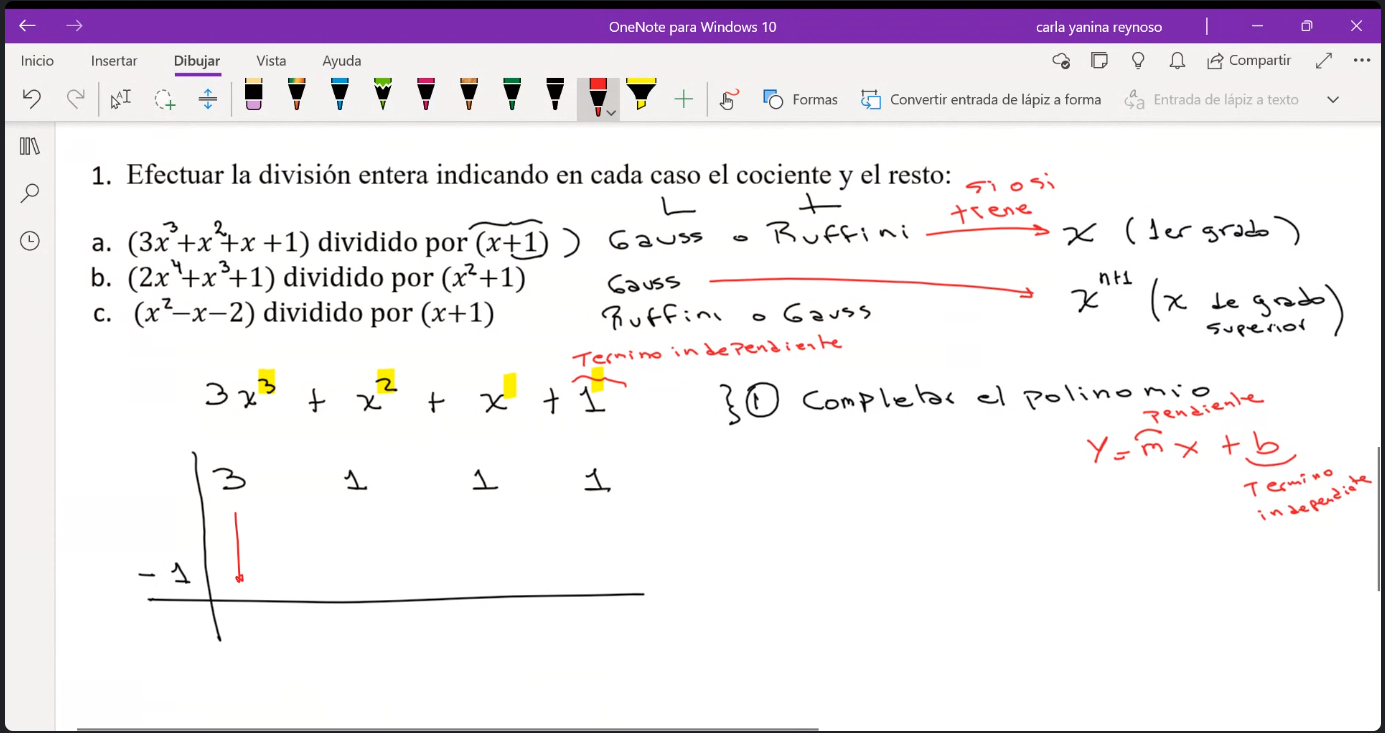 OneNote para Windows 10
carla yanina reynoso
Inicio Insertar Dibujar Vista Ayuda
Compartir
Formas
Convertir entrada de lápiz a forma
Entrada de lápiz a texto
1. Efectuar la división entera indicando en cada caso el cociente y el resto:
a. (3x³+x²+x +1) dividido por (x+1) ) Gauss o Ruffini si o si tiene x (1er grado)
b. (2x⁴+x³+1) dividido por (x²+1) Gauss xⁿ⁺¹ (x de grado superior)
c. (x²−x−2) dividido por (x+1) Ruffini o Gauss
Termino independiente
3x³ + x² + x + 1 } ① Completar el polinomio
pendiente
Y = mx + b
Termino
independiente
3 1 1 1
- 1